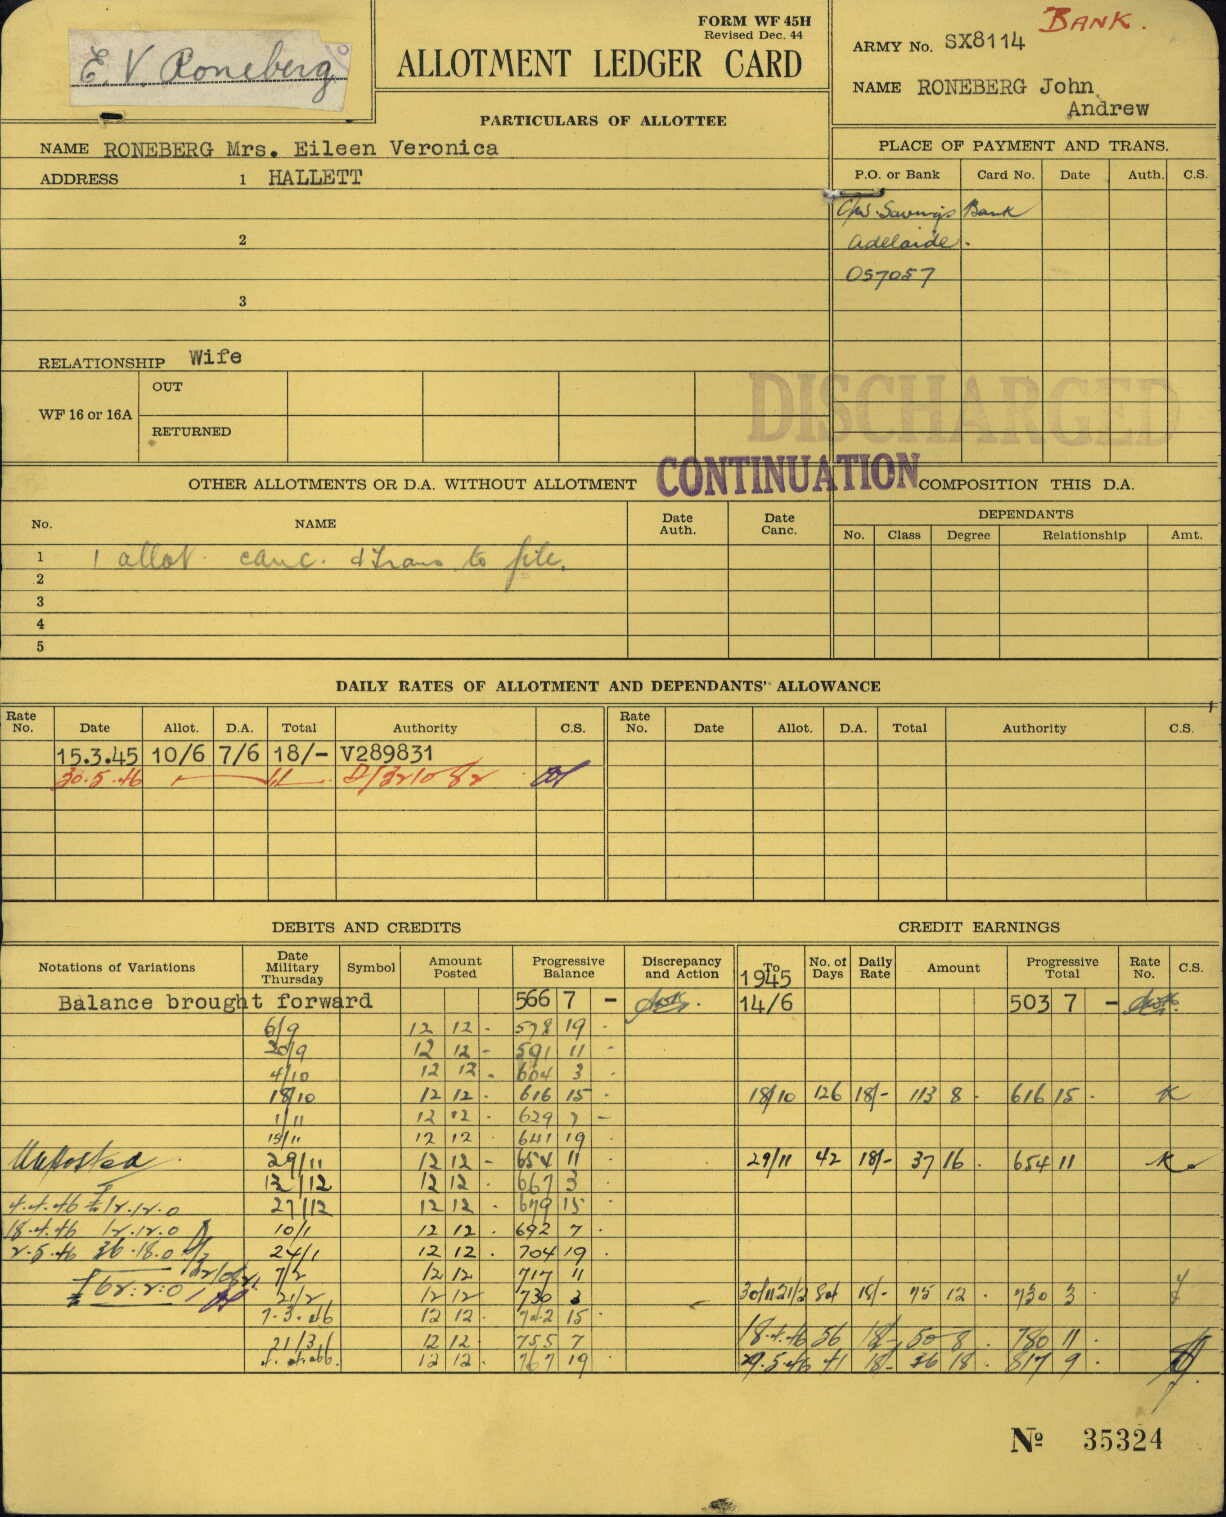 E. V. Roneberg
FORM WF 45H
Revised Dec. 44
ALLOTMENT LEDGER CARD
BANK.
ARMY No. SX8114
NAME RONEBERG John
Andrew
PARTICULARS OF ALLOTTEE
NAME RONEBERG Mrs. Eileen Veronica
ADDRESS 1 HALLETT
2
3
RELATIONSHIP Wife
WF 16 or 16A
OUT
RETURNED
PLACE OF PAYMENT AND TRANS.
P.O. or Bank Card No. Date Auth. C.S.
Savings Bank
Adelaide.
057057
DISCHARGED
CONTINUATION
OTHER ALLOTMENTS OR D.A. WITHOUT ALLOTMENT
No. NAME Date Auth. Date Canc.
1 1 allot. canc. & trans to file.
2
3
4
5
COMPOSITION THIS D.A.
DEPENDANTS
No. Class Degree Relationship Amt.
DAILY RATES OF ALLOTMENT AND DEPENDANTS' ALLOWANCE
Rate No. Date Allot. D.A. Total Authority C.S. Rate No. Date Allot. D.A. Total Authority C.S.
15.3.45 10/6 7/6 18/- V289831
30.5.46
DEBITS AND CREDITS
CREDIT EARNINGS
Notations of Variations Date Military Thursday Symbol Amount Posted Progressive Balance Discrepancy and Action To 1945 No. of Days Daily Rate Amount Progressive Total Rate No. C.S.
Balance brought forward 566 7 - 14/6 503 7 -
6/9 12 12 - 578 19 -
20/9 12 12 - 591 11 -
4/10 12 12 - 604 3 -
18/10 12 12 - 616 15 - 18/10 126 18/- 113 8 - 616 15 - K
1/11 12 12 - 629 7 -
15/11 12 12 - 641 19 -
Unposted 29/11 12 12 - 654 11 - 29/11 42 18/- 37 16 - 654 11 - K
13/12 12 12 - 667 3 -
4.4.46 £12.12.0 27/12 12 12 - 679 15 -
18.4.46 12.12.0 10/1 12 12 - 692 7 -
2.5.46 36.18.0 24/1 12 12 - 704 19 -
7/2 12 12 717 11
£62:2:0 21/2 12 12 730 3 30/11 21/2 84 18/- 75 12 - 730 3 -
7.3.46 12 12 - 742 15 -
21/3/46 12 12 - 755 7 18.4.46 56 18/- 50 8 - 780 11 -
4.4.46. 12 12 - 767 19 - 29.5.46 41 18- 36 18 - 817 9 -
No 35324